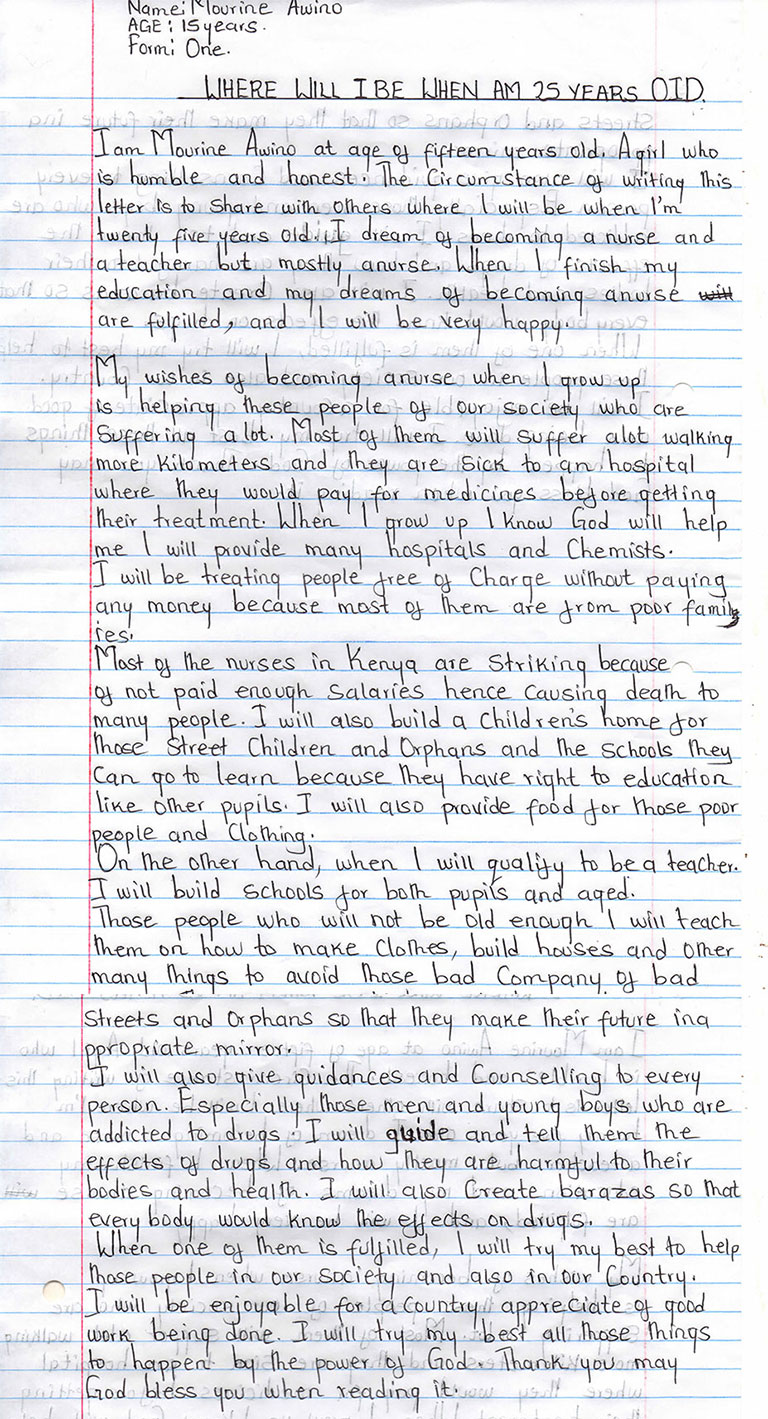 Name: Mourine Awino
AGE: 15 years.
Form: One.
WHERE WILL I BE WHEN AM 25 YEARS OlD.
I am Mourine Awino at age of fifteen years old. A girl who
is humble and honest. The Circumstance of writing this
letter is to share with others where I will be when I'm
twenty five years old. I dream of becoming a nurse and
a teacher but mostly anurse. When I finish my
education and my dreams of becoming anurse will
are fulfilled, and I will be very happy.
My wishes of becoming anurse when I grow up
is helping these people of our society who are
Suffering a lot. Most of them will suffer alot walking
more Kilometers and they are sick to an hospital
where they would pay for medicines before getting
their treatment. When I grow up I know God will help
me I will provide many hospitals and Chemists.
I will be treating people free of Charge without paying
any money because most of them are from poor famil
ies.
Most of the nurses in Kenya are striking because
of not paid enough salaries hence causing death to
many people. I will also build a children's home for
those Street Children and Orphans and the schools they
Can go to learn because they have right to education
like other pupils. I will also provide food for those poor
people and Clothing.
On the other hand, when I will qualify to be a teacher.
I will build schools for both pupils and aged.
Those people who will not be old enough I will teach
them on how to make Clothes, build houses and other
many things to avoid those bad Company of bad
Streets and Orphans so that they make their future in a
ppropriate mirror.
I will also give guidances and Counselling to every
person. Especially those men and young boys who are
addicted to drugs. I will guide and tell them the
effects of drugs and how they are harmful to their
bodies and health. I will also Create barazas so that
every body would know the effects on drugs.
When one of them is fulfilled, I will try my best to help
those people in our society and also in our Country.
I will be enjoyable for a country appreciate of good
work being done. I will try my best all those things
to happen by the power of God. Thank you may
God bless you when reading it.